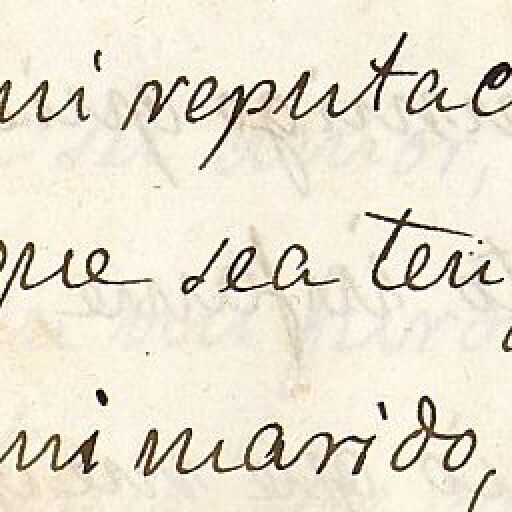 mi reputac
que sea ten
mi marido,